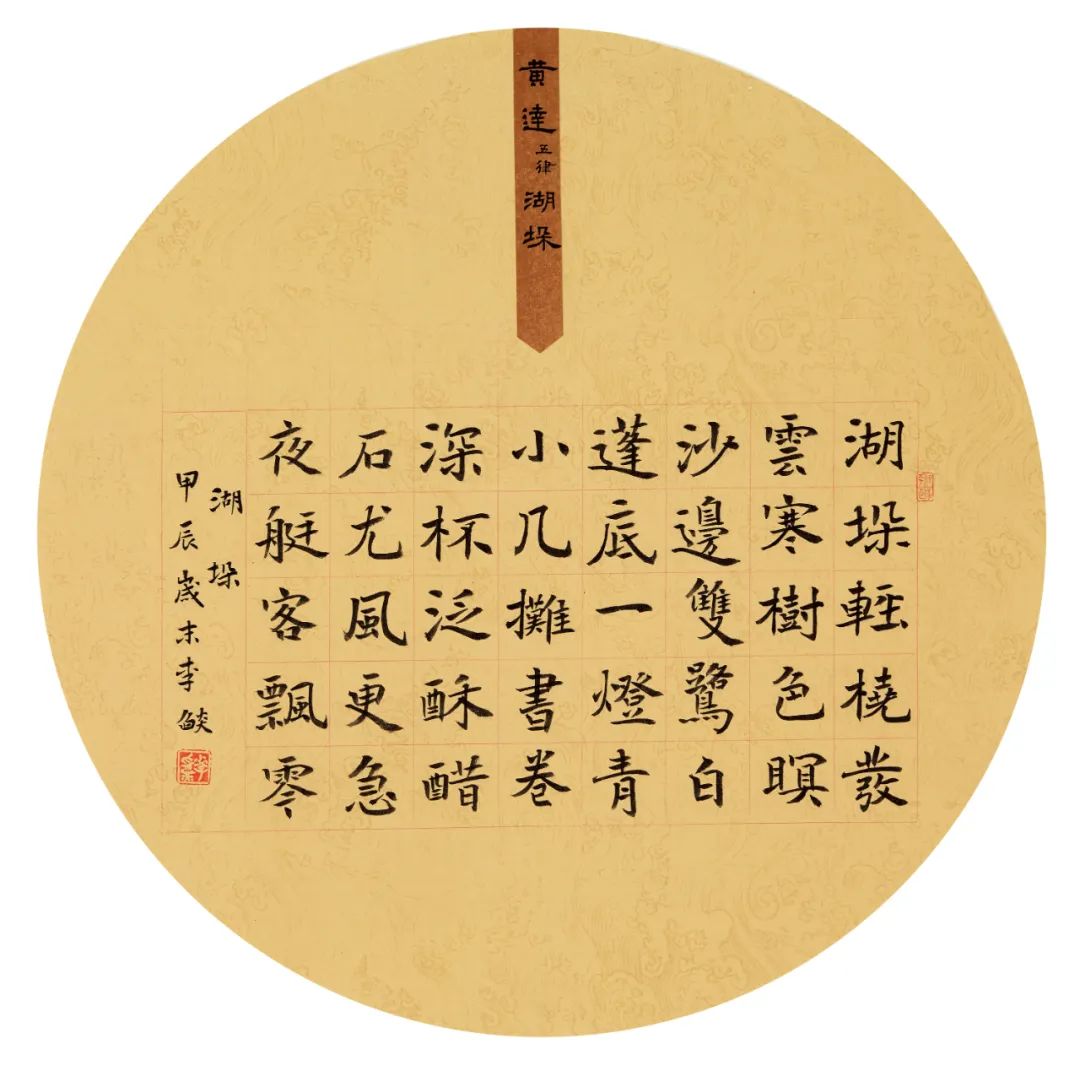 黄達五律湖垛
湖垛輕橈發
雲寒樹色暝
沙邊雙鷺白
蓬底一燈青
小几攤書卷
深杯泛酥醋
石尤風更急
夜艇客飄零
湖垛
甲辰歲末李燄